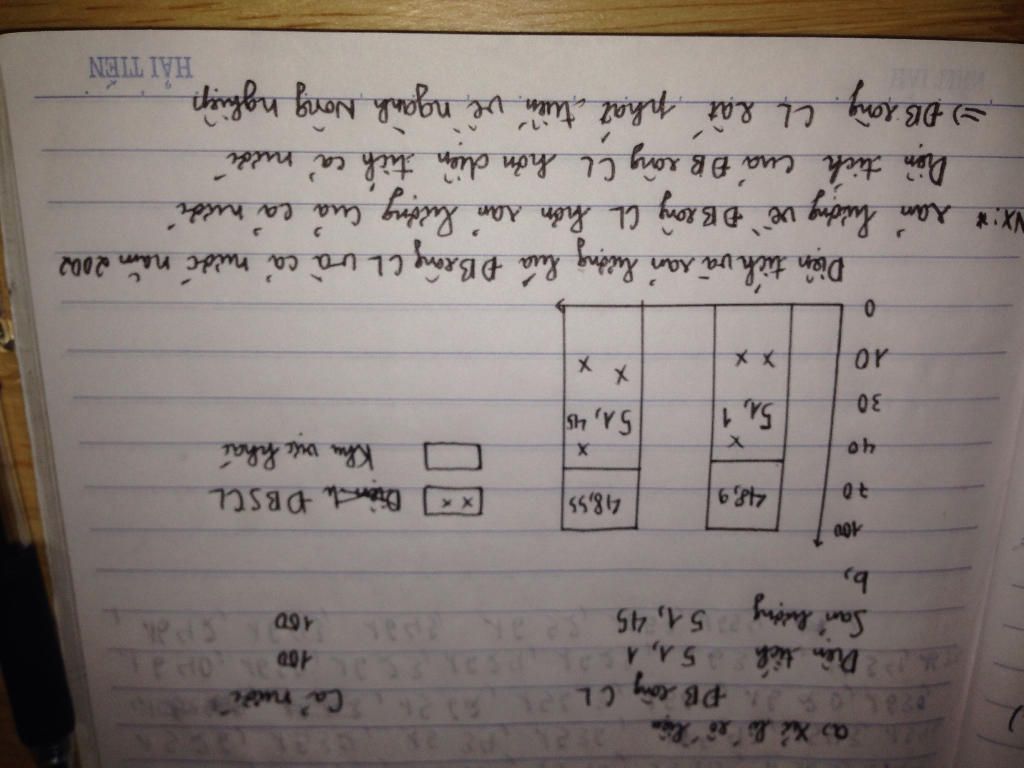 a) Xử lí số liệu
ĐB sông CL Cả nước
Diện tích 51,1 100
Sản lượng 51,45 100
b,
100
70
40
30
10
0
48,9
51,1
48,55
51,45
ĐBSCL
Khu vực khác
Diện tích và sản lượng lúa ĐB sông CL và cả nước năm 2002
NX: * sản lượng về ĐB sông CL hơn sản lượng của cả nước
Diện tích của ĐB sông CL hơn diện tích cả nước
=> ĐB sông CL rất phát triển về ngành Nông nghiệp
HẢI TIẾN